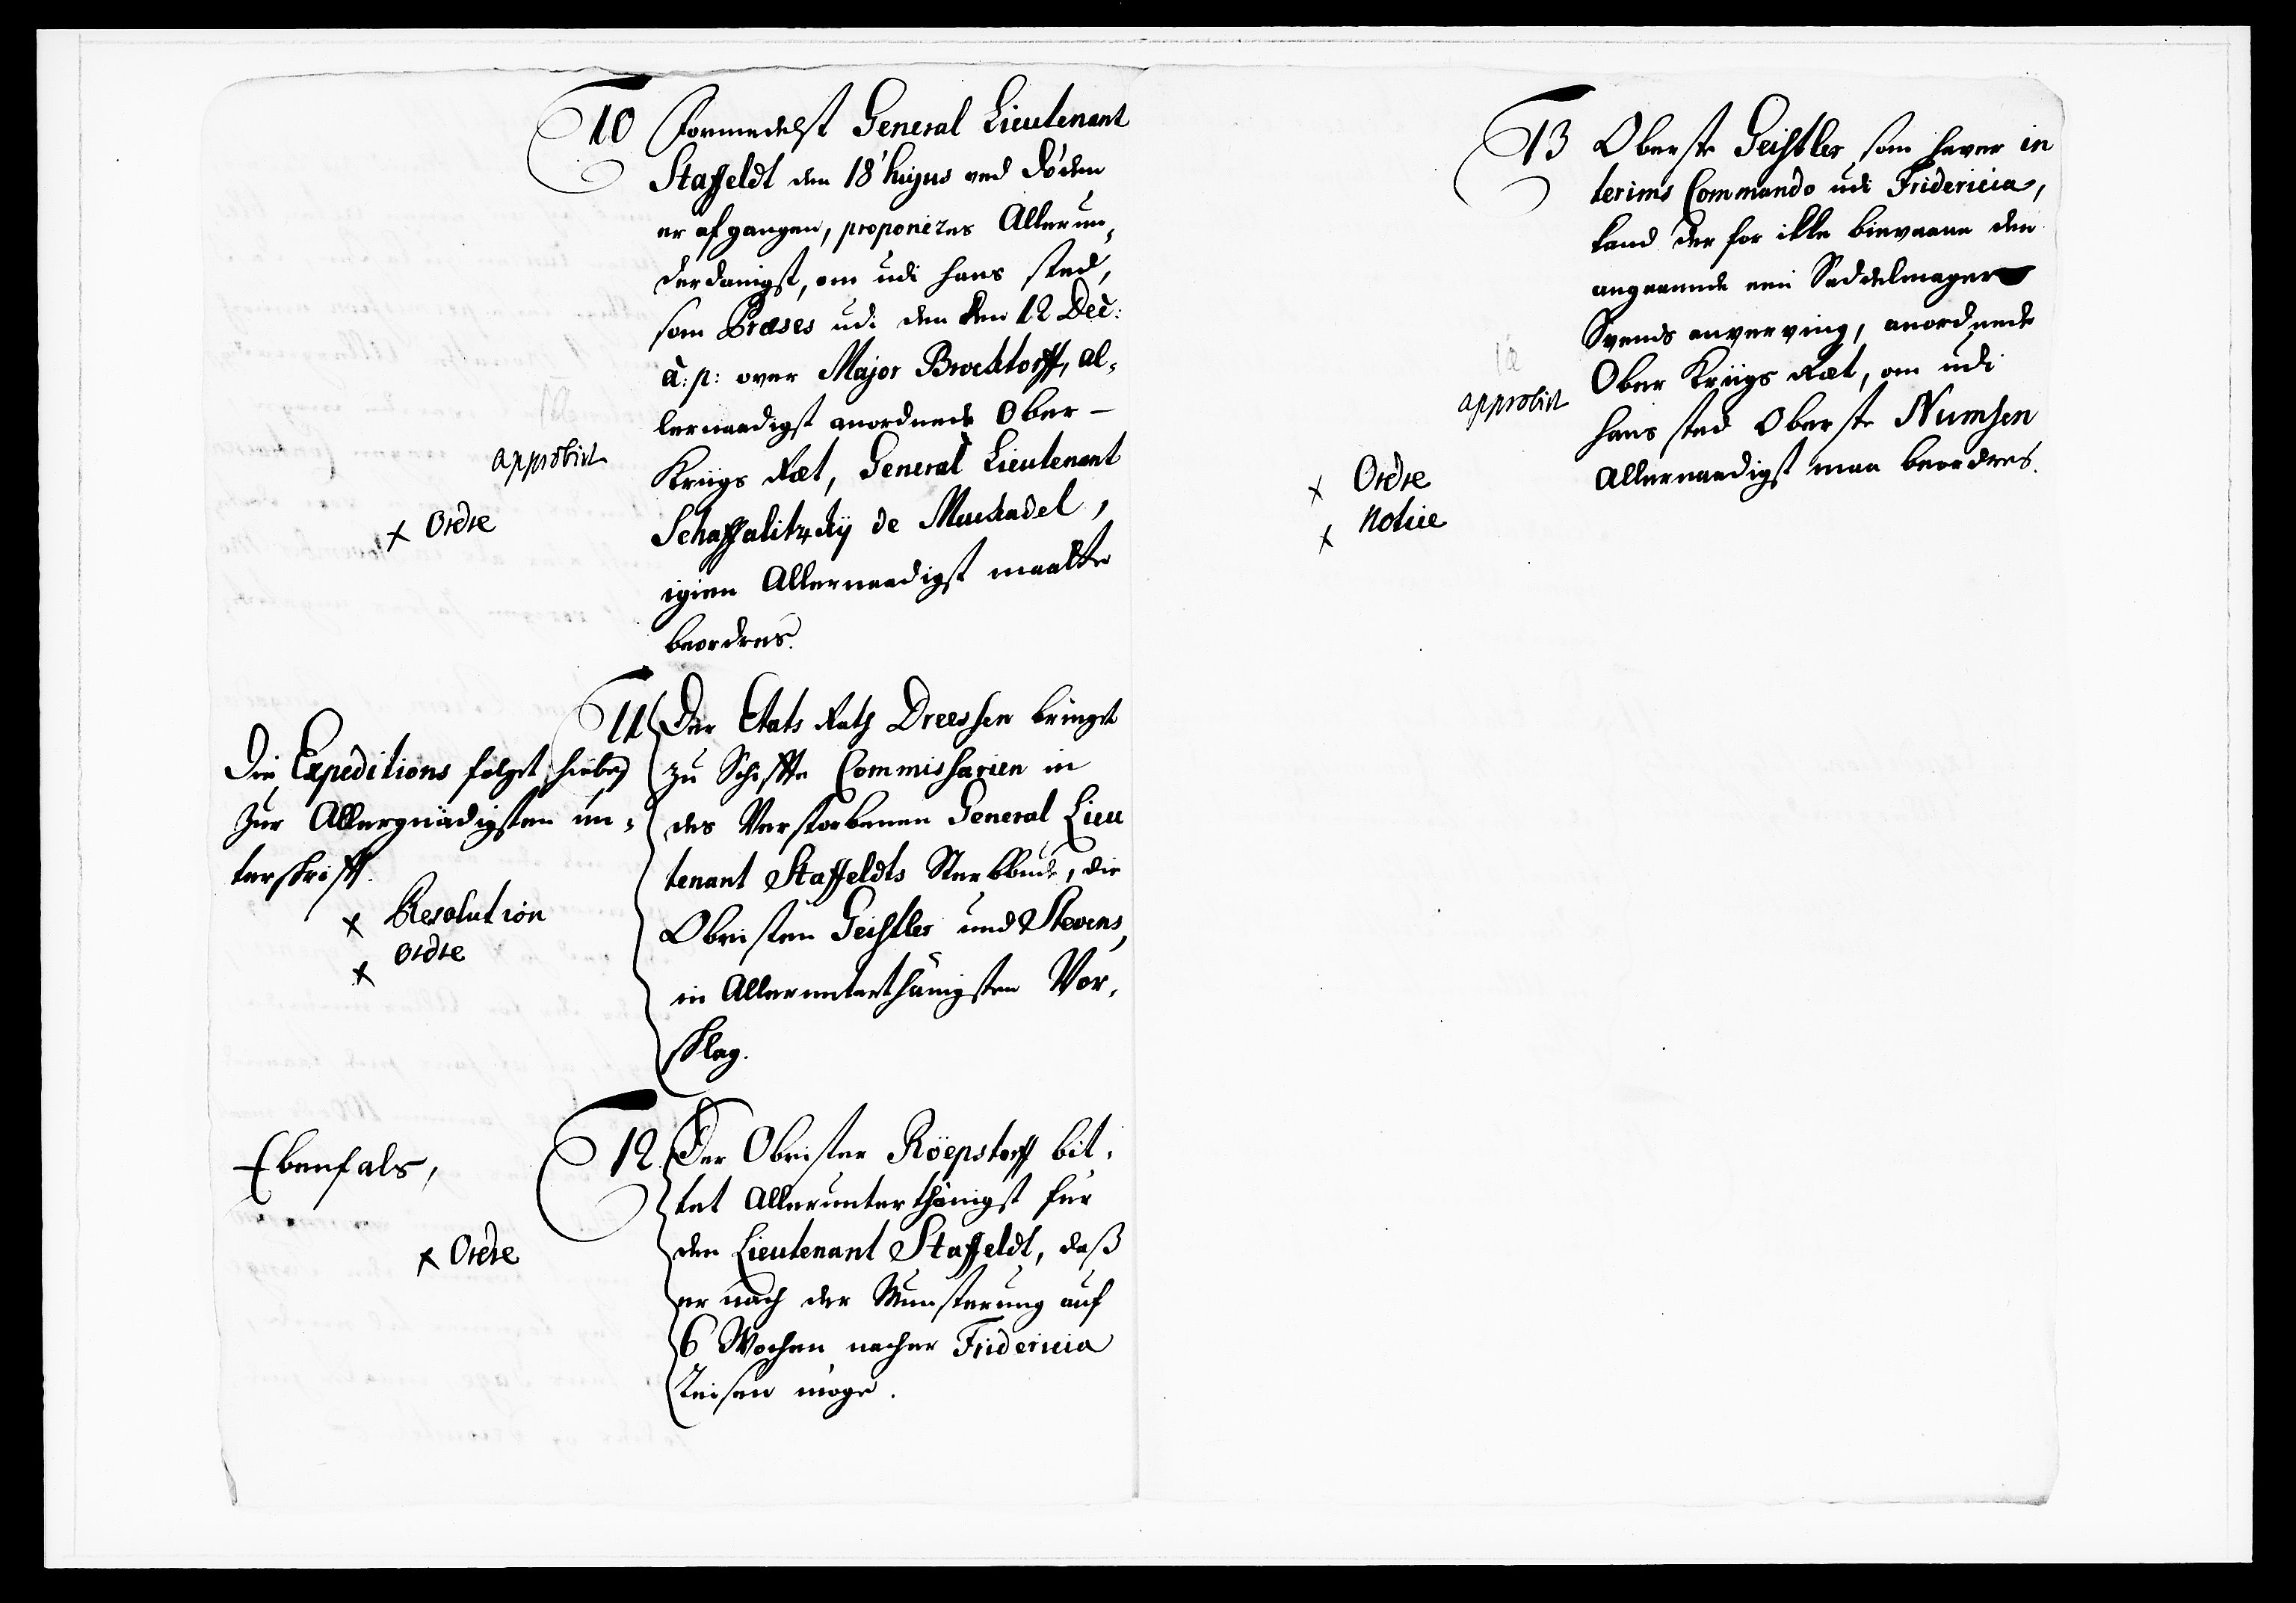 10 Formedelst General Lieutenant
Staffeldt den 18' hujus ved døden
er afgangen, proponeres Allerun,
derdanigst, om udi hans sted,
som Præses udi den den 12 Dec:
a: p: over Major Brocktorff, al,
lernaadigst anordnede Ober-
Kriigs Ræt, General Lieutenant
Schaffalitzkÿ de Muckadel,
igien Allernaadigst maatte
beordres.
approbirt
x Ordre
11 Der Etats Rath Dreessen bringet
zu Schiffte Commissarien in
des Verstorbenen General Lieu
tenant Staffeldts Sterbbude, die
Obristen Geistler und Stevens,
in Allerunterthänigsten Vor,
schlag.
Die Expeditions folget hiebey
zur Allergnädigsten un,
terschrifft.
x Resolution
x ordre
12. Der Obrister Röepstorff bit,
tet Allerunterthänigst für
den Lieutenant Staffeldt, daß
er nach der Munsterung auf
6 Wochen nacher Fridericia
Reisen möge.
Ebenfals,
x Ordre
13 Oberste Geistler som haver in
terims Commando udi Fridericia,
kand der for ikke bievaane den
angaaende een Saddelmager
Svends anverving, anordnede
Ober Kriigs Ræt, om udi
hans sted Oberste Numsen
Allernaadigst maa beordres.
approbirt
x Ordre
x Notice